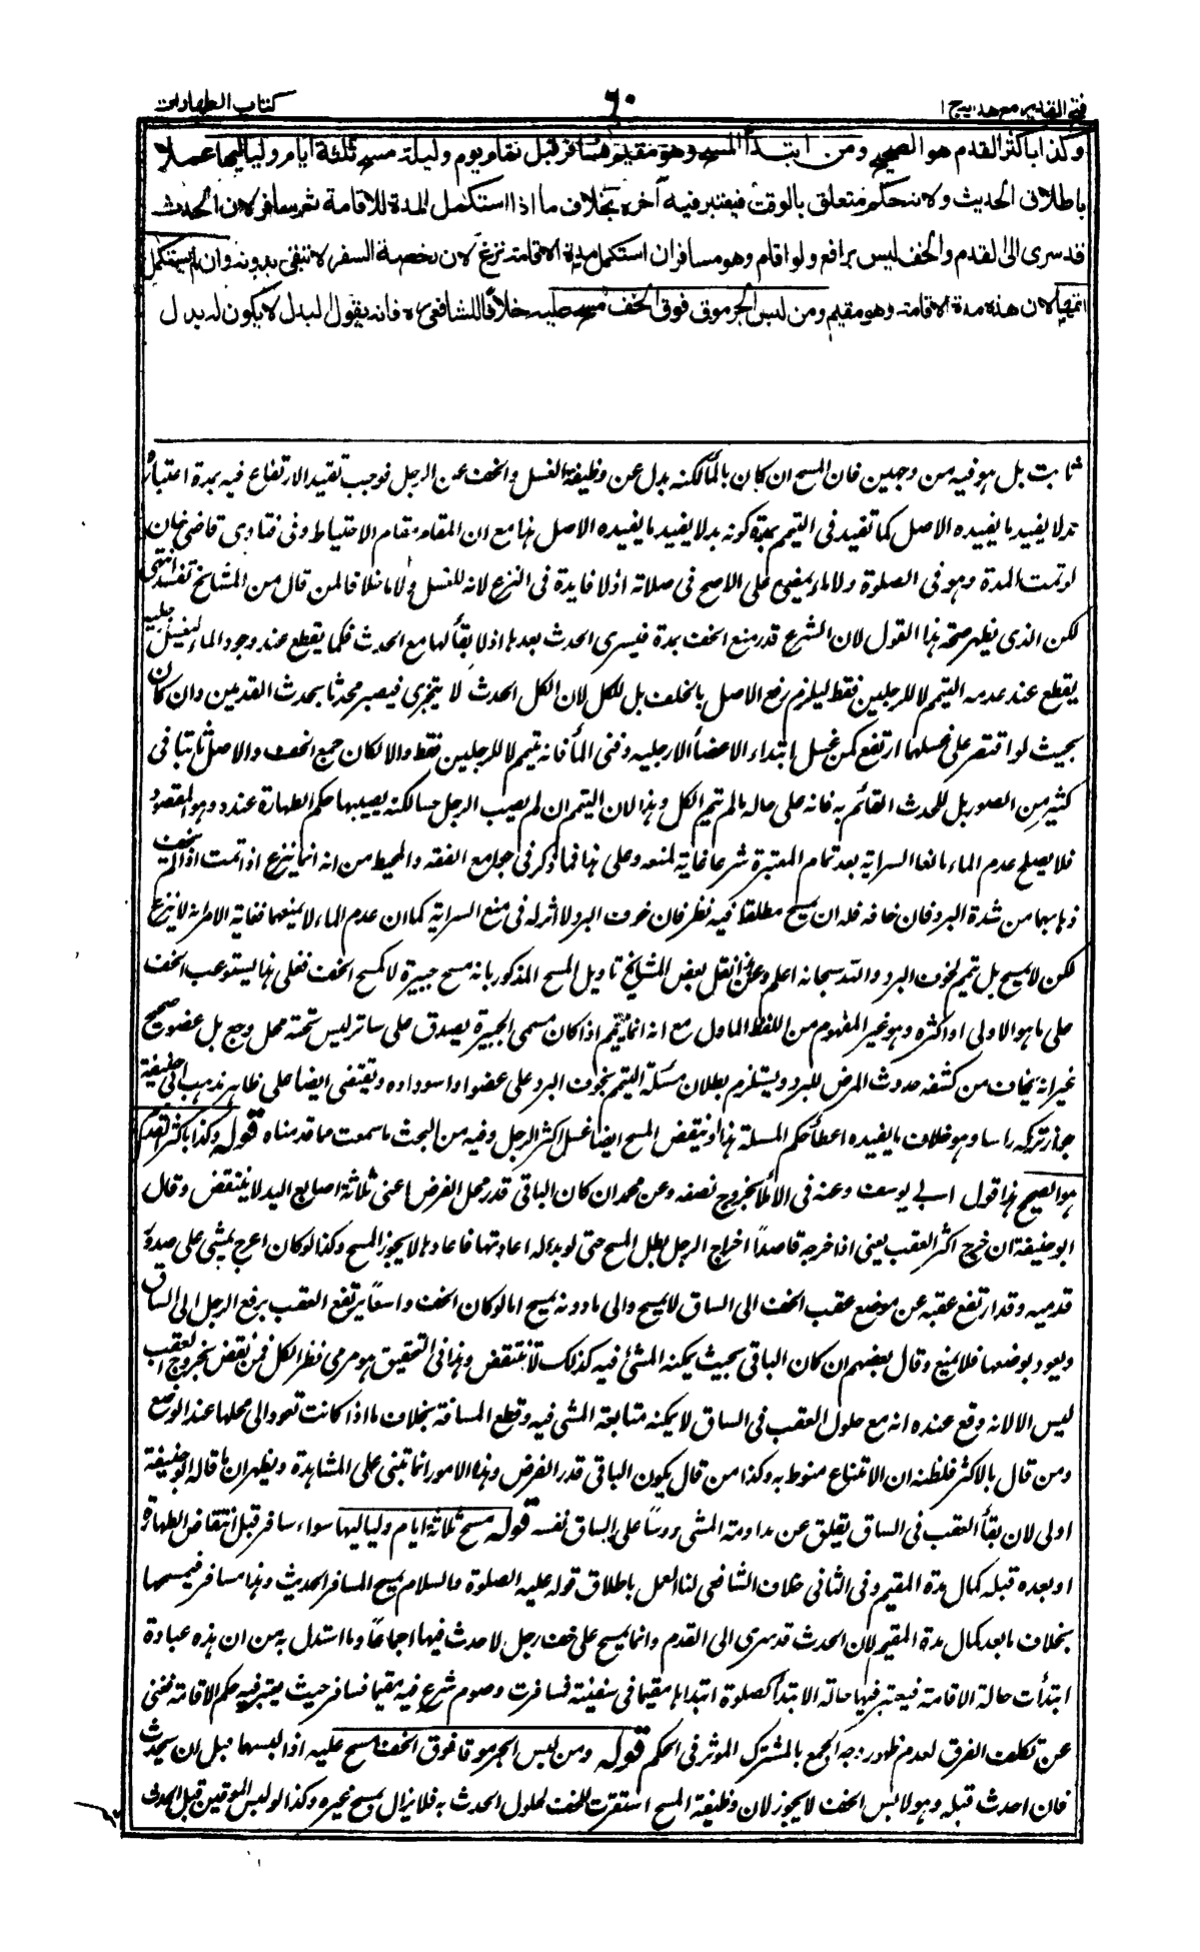 فتح القدير مع هدايه ج ا
٦٠
كتاب الطهارات
وكذا باكثر القدم هو الصحيح ومن ابتدأ المسح وهو مقيم فسافر قبل تمام يوم وليلة مسح ثلثة ايام ولياليها عملا
باطلاق الحديث ولانه حكم متعلق بالوقت فيعتبر فيه آخره بخلاف ما اذا استكمل المدة للاقامة ثم سافر لان الحدث
قد سرى الى القدم والخف ليس برافع ولو اقام وهو مسافر ان استكمل مدة الاقامة نزع لان رخصة السفر لا تبقى بدونه وان لم يستكمل
اتمها لان هذه مدة الاقامة وهو مقيم ومن لبس الجرموق فوق الخف مسح عليه خلافا للشافعي ره فانه يقول البدل لا يكون له بدل
ثابت بل هو فيه من وجهين فان المسح ان كان بالماء لكنه بدل عن وظيفة الغسل والخف عن الرجل فوجب تقييد الارتفاع فيه بمدة اعتباره
بدلا يفيد ما يفيده الاصل كما تقيد في التيمم بمدة كونه بدلا يفيد ما يفيده الاصل هذا مع ان المقام مقام الاحتياط وفى فتاوى قاضى خان
لو تمت المدة وهو فى الصلوة ولا ماء يمضى على الاصح فى صلاته اذ لا فايدة فى النزع لانه للغسل ولا ماء خلافا لمن قال من المشايخ تفسد انتهى
لكن الذى يظهر صحة هذا القول لان الشرع قدر منع الخف بمدة فيسرى الحدث بعدها اذ لا بقاء لها مع الحدث فكما يقطع عند وجود الماء ليغسل رجليه
يقطع عند عدمه ليتيمم لا للرجلين فقط ليلزم رفع الاصل بالخلف بل للكل لان الكل الحدث لا يتجزى فيصير محدثا بحدث القدمين وان كان
بحيث لو اقتصر على غسلهما ارتفع كمن غسل ابتداء الاعضاء الا رجليه وفنى الماء فانه يتيمم لا للرجلين فقط والا لكان جمع الخلف والاصل ثابتا فى
كثير من الصور بل للحدث القائم به فانه على حاله ما لم يتم الكل وهذا لان التيمم ان لم يصب الرجل حسا لكنه يصيبها حكم الطهارة عنده وهو المقصود
فلا يصلح عدم الماء مانعا السراية بعد تمام المعتبرة شرعا غاية لمنعه وعلى هذا فما ذكر فى جوامع الفقه والمحيط من انه انما ينزع اذا تمت اذا لم يخف
ذهابهما من شدة البرد فان خافه فله ان يمسح مطلقا فيه نظر فان خوف البرد لا اثر له فى منع السراية كما ان عدم الماء لا يمنعها فغاية الامر انه لا ينزع
لكن لا يمسح بل يتيمم لخوف البرد والله سبحانه اعلم وعن هذا نقل بعض المشايخ تاويل المسح المذكور بانه مسح جبيرة لا كمسح الخف فعلى هذا يستوعب الخف
على ما هو الاولى او اكثره وهو غير المفهوم من اللفظ الماول مع انه انما يتم اذا كان مسمى الجبيرة يصدق على ساتر ليس تحته محل وجع بل عضو صحيح
غير انه يخاف من كشفه حدوث المرض للبرد ويستلزم بطلان مسئلة التيمم بخوف البرد على عضو او اسوداده ويقتضى ايضا على ظاهر مذهب ابى حنيفة
جواز تركه راسا وهو خلاف ما يفيده اعطاء حكم المسئلة هذا وينتقض المسح ايضا غسل اكثر الرجل وفيه من البحث ما سمعت مما قدمناه قوله وكذا باكثر القدم
هو الصحيح هذا قول ابي يوسف وعنه فى الاملاء بخروج نصفه وعن محمد ان كان الباقى قدر محل الفرض اعنى ثلاثة اصابع اليد لا ينتقض وقال
ابو حنيفة ان خرج اكثر العقب يعنى اذا خرجه قاصدا اخراج الرجل بطل المسح حتى لو بدا له اعادتها فاعادها لا يجوز المسح وكذا لو كان اعرج يمشى على صدور
قدميه وقد ارتفع عقبه عن موضع عقب الخف الى الساق لا يمسح والى ما دونه يمسح اما لو كان الخف واسعا يرتفع العقب برفع الرجل الى الساق
ويعود بوضعها فلا يمنع وقال بعضهم ان كان الباقى بحيث يمكنه المشى فيه كذلك لا ينتقض وهذا فى التحقيق هو مرمى نظر الكل فمن نقض بخروج العقب
ليس الا لانه وقع عنده انه مع حلول العقب فى الساق لا يمكنه متابعة المشى فيه وقطع المسافة بخلاف ما اذا كانت تعود الى محلها عند الوضع
ومن قال بالاكثر فلظنه ان الامتناع منوط به وكذا من قال بكون الباقى قدر الفرض وهذه الامور انما تبنى على المشاهدة ويظهر ان ما قاله ابو حنيفة
اولى لان بقاء العقب فى الساق يعلق عن مداومة المشى دوسا على الساق نفسه قوله مسح ثلاثة ايام ولياليها سواء سافر قبل انتقاض الطهارة
او بعده قبل كمال مدة المقيم وفى الثانى خلاف الشافعى لنا العمل باطلاق قوله عليه الصلوة والسلام يمسح المسافر الحديث وهذا مسافر فيمسحها
بخلاف ما بعد كمال مدة المقيم لان الحدث قد سرى الى القدم وانما يمسح على خف رجل لا حدث فيها اجماعا وما استدل به من ان هذه عبادة
ابتدأت حالة الاقامة فيعتبر فيها حالة الابتداء كصلوة ابتداها مقيما فى سفينة فسافرت وصوم شرع فيه مقيما فسافر حيث يعتبر فيه حكم الاقامة فغنى
عن تكلف الفرق لعدم ظهور وجه الجمع بالمشترك الموثر فى الحكم قوله ومن لبس الجرموقا فوق الخف مسح عليه اذا لبسهما قبل ان يحدث
فان احدث قبله وهو لابس الخف لا يجوز لان وظيفة المسح استقرت للخف لحلول الحدث به فلا يزال بمسح غيره وكذا لو لبس الموقين قبل الحدث